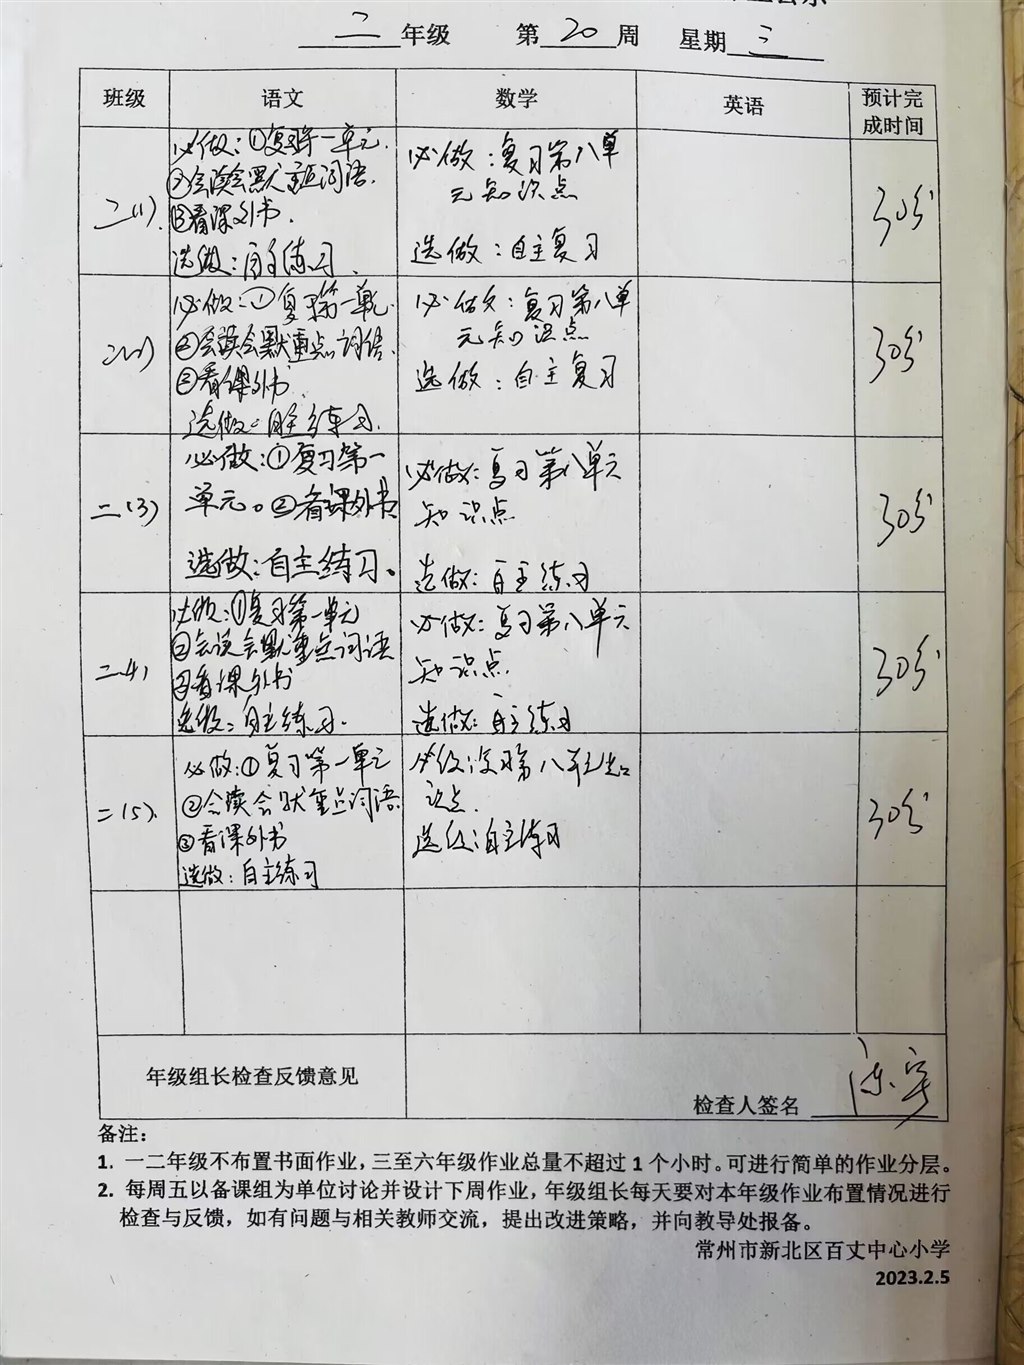 二年级 第20周 星期三
班级 语文 数学 英语 预计完成时间
二(1)
必做:①复习第一单元.
②会读会默重点词语.
③看课外书.
选做:自主练习.
必做:复习第八单
元知识点
选做:自主复习
30分
二(2)
必做:①复习第一单元.
②会读会默重点词语.
③看课外书.
选做:自主练习.
必做:复习第八单
元知识点
选做:自主复习
30分
二(3)
必做:①复习第一
单元。②看课外书
选做:自主练习。
必做:复习第八单元
知识点
选做:自主练习
30分
二(4)
必做:①复习第一单元
②会读会默重点词语
③看课外书
选做:自主练习.
必做:复习第八单元
知识点.
选做:自主练习
30分
二(5)
必做:①复习第一单元
②会读会默重点词语
③看课外书
选做:自主练习
必做:复习第八单元知
识点.
选做:自主练习
30分
年级组长检查反馈意见
检查人签名
备注:
1. 一二年级不布置书面作业,三至六年级作业总量不超过1个小时。可进行简单的作业分层。
2. 每周五以备课组为单位讨论并设计下周作业,年级组长每天要对本年级作业布置情况进行
检查与反馈,如有问题与相关教师交流,提出改进策略,并向教导处报备。
常州市新北区百丈中心小学
2023.2.5